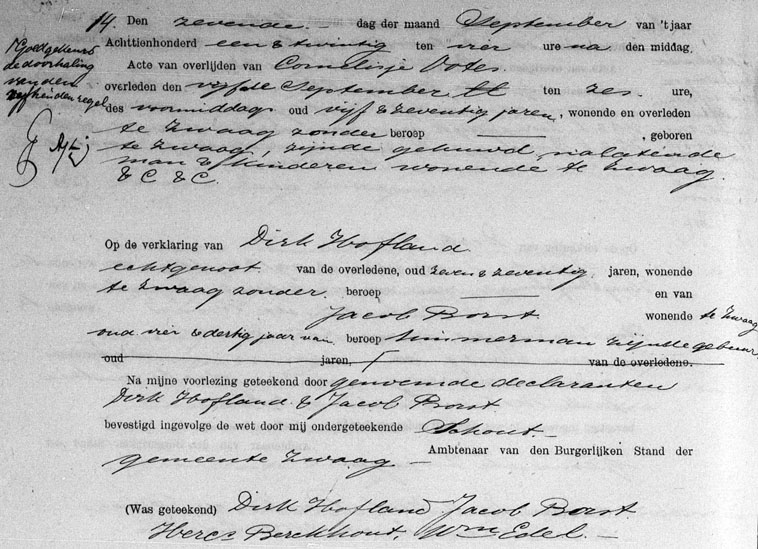 14. Den zevende dag der maand September van 't jaar
Achttienhonderd een & twintig ten vier ure na den middag,
Acte van overlijden van Cornelisje Votes
overleden den vijfde September ten zes ure,
des voormiddags oud vijf & zeventig jaren, wonende en overleden
te Zwaag zonder beroep , geboren
te Zwaag, zijnde gehuwd, nalatende
man & kinderen wonende te Zwaag.
& C & C.
Goedgekeurd
de doorhaling
van den
regel
Op de verklaring van Dirk Hofland
echtgenoot van de overledene, oud zeven & zeventig jaren, wonende
te Zwaag zonder beroep en van
Jacob Borst wonende te Zwaag
oud vier & dertig jaar van beroep timmerman zijnde gebuur,
oud jaren, van de overledene.
Na mijne voorlezing geteekend door genoemde declaranten
Dirk Hofland & Jacob Borst.
bevestigd ingevolge de wet door mij ondergeteekende Schout.
Ambtenaar van den Burgerlijken Stand der
gemeente Zwaag
(Was geteekend) Dirk Hofland Jacob Borst.
Hercs Berckhout, Wm Edel.